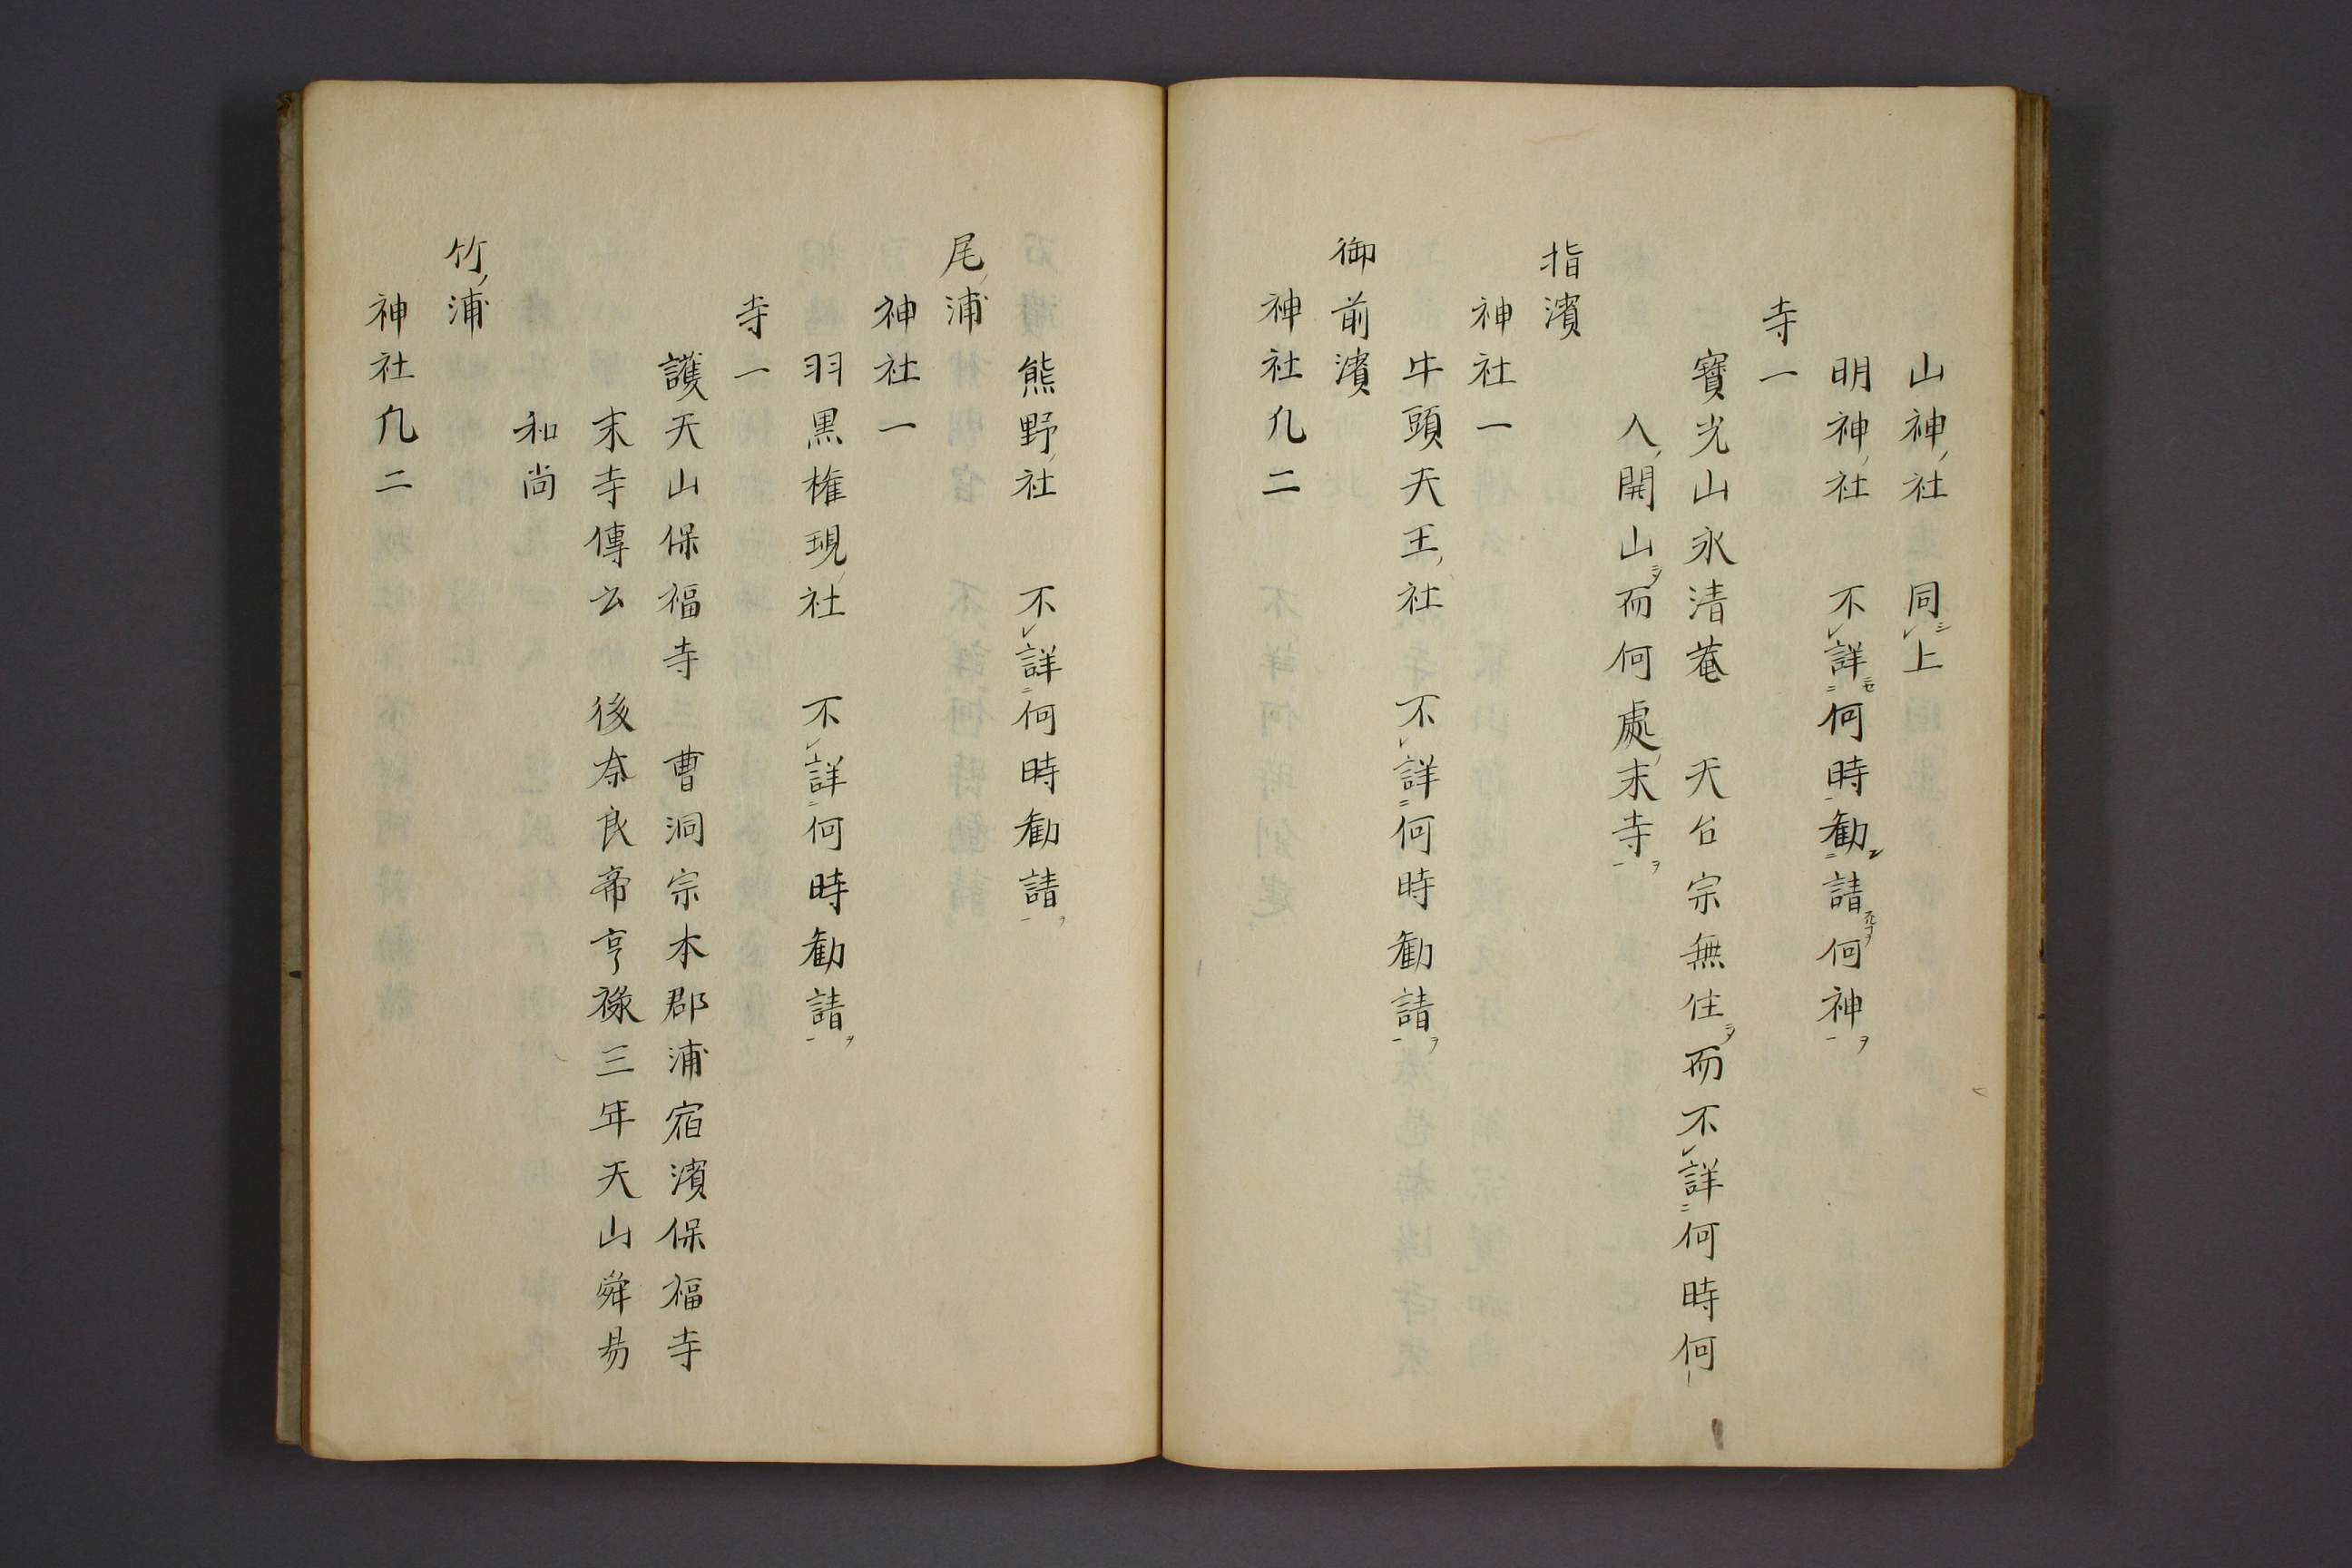 山神社　同上
明神社　不詳何時勸請何神
寺一
寶光山永清菴　天台宗無住而不詳何時何
人開山而何處末寺
指濱
神社一
牛頭天王社　不詳何時勧請
御前濱
神社凢二
熊野社　不詳何時勧請
尾浦
神社一
羽黒権現社　不詳何時勧請
寺一
護天山保福寺　曹洞宗本郡浦宿濱保福寺
末寺傳云　後奈良帝亨禄三年天山舜昜
和尚
竹浦
神社凢二